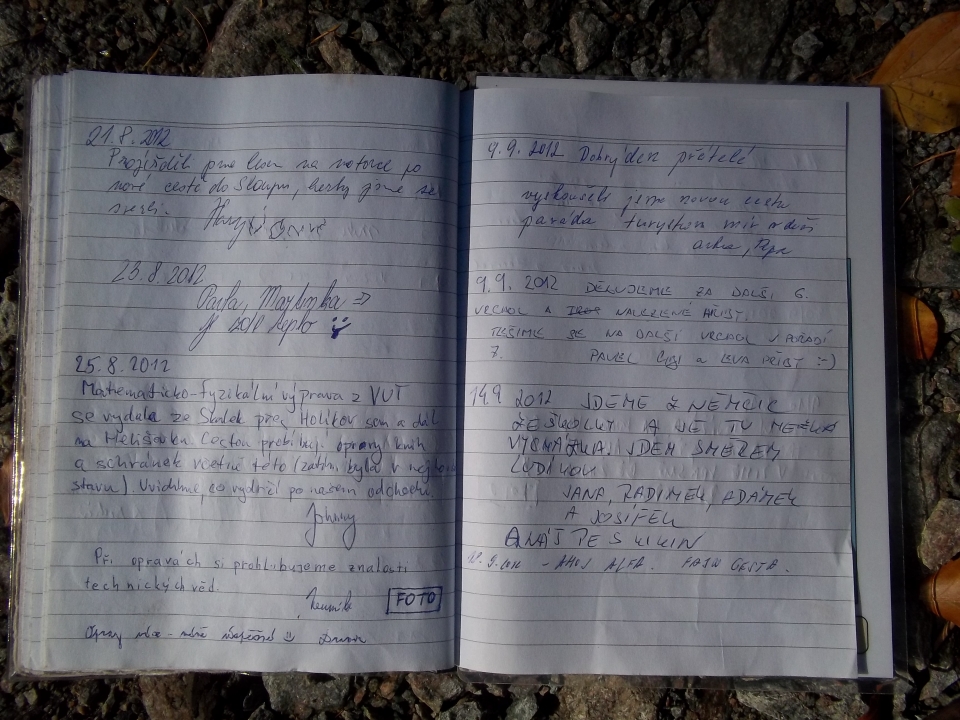 21.8.2012
Projížděli jsme na motorce po
nové cestě do Sloupu, kerby jsme se
23.8.2012
Pavla,
je teplo
25.8.2012
Matematicko-fyzikální výprava z VUT
se vydala ze Skalek přes Holíkov sem a dál
na Helišovku. Cestou probíhají opravy knih
a schránek včetně této (zatím byla v
stavu). Uvidíme, co vydrží po našem odchodu.
Johnny
Při opravách si prohlubujeme znalosti
technických věd.
FOTO
Opravy více - méně
9.9. 2012 Dobrý den přátelé
vyskoušeli jsme novou cestu
paráda turystom mír
9.9. 2012 DĚKUJEME ZA DALŠÍ 6.
VRCHOL A NALEZENÉ
TĚŠÍME SE NA DALŠÍ VRCHOL V POŘADÍ
7. PAVEL A EVA
14.9 2012 JDEME Z NĚMČIC
ZE ŠKOLKY A JE TU
JDEM SMĚREM
LUDÍKOV
JANA, RADIMEK, ADÁMEK
A JOSÍFEK
A NÁŠ PES KIKIN
- AHOJ ALFA. FAJN CESTA.